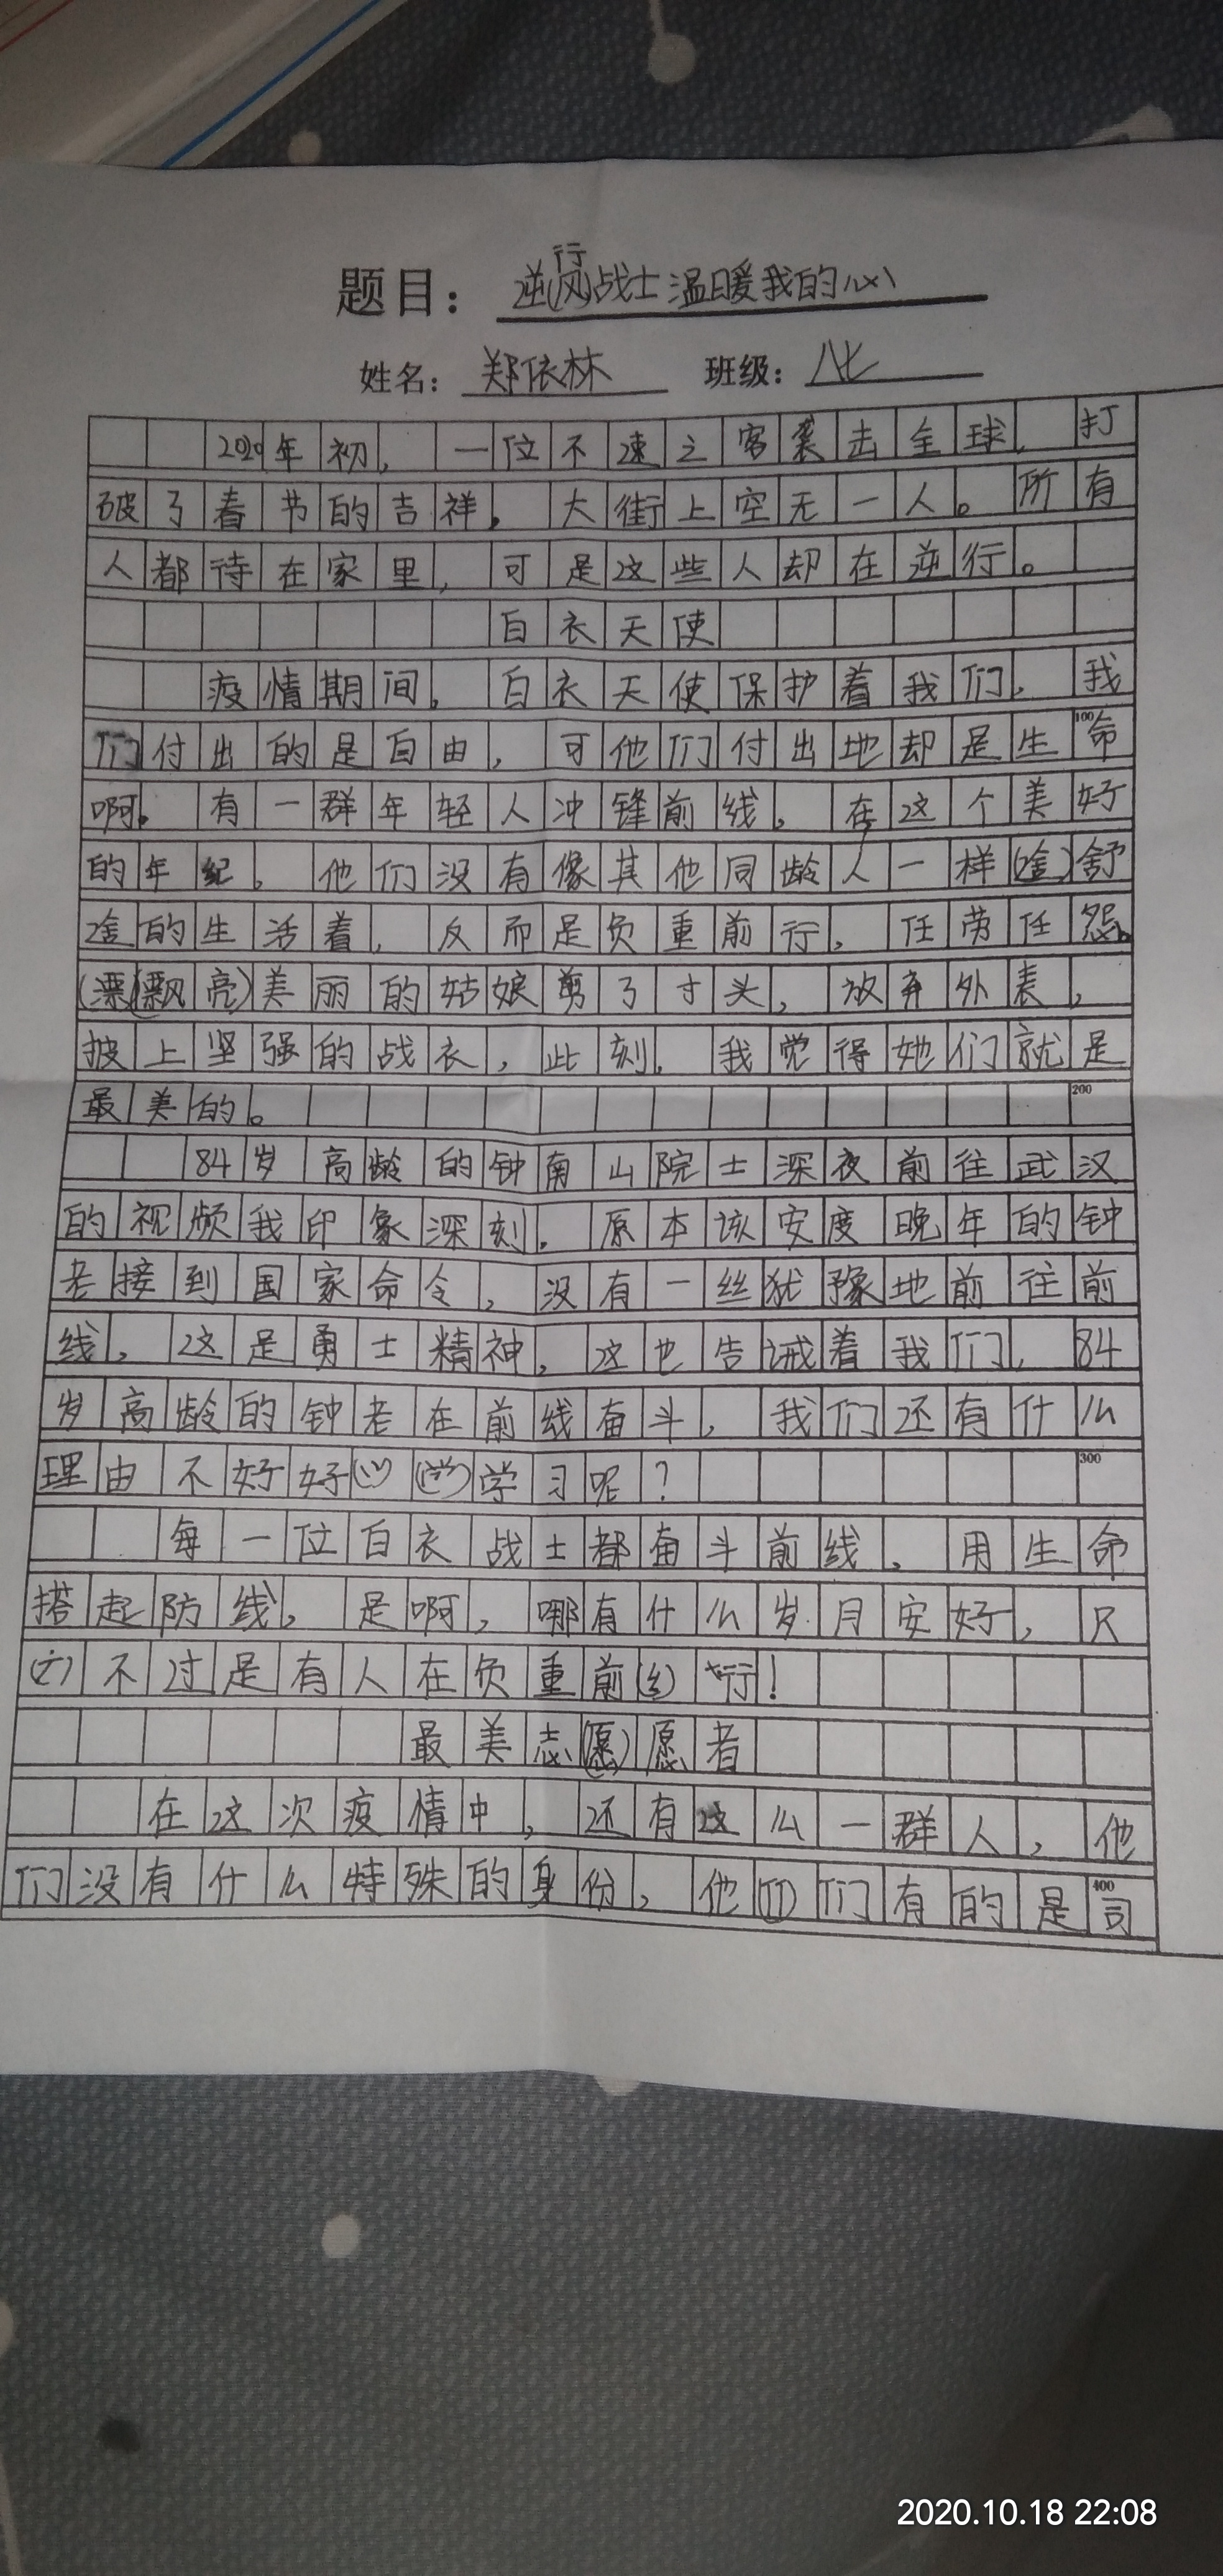 题目：逆行战士温暖我的心
姓名：郑依林 班级：八七
2020年初，一位不速之客袭击全球，打
破了春节的吉祥。大街上空无一人。所有
人都待在家里，可是这些人却在逆行。
白衣天使
疫情期间，白衣天使保护着我们，我
们付出的是自由，可他们付出地却是生命
啊。有一群年轻人冲锋前线。在这个美好
的年纪。他们没有像其他同龄人一样舒
的生活着，反而是负重前行，任劳任怨。
(漂)(飘亮)美丽的姑娘剪了寸头，放弃外表，
披上坚强的战衣，此刻，我觉得她们就是
最美的。
84岁高龄的钟南山院士深夜前往武汉
的视频我印象深刻。原本该安度晚年的钟
老接到国家命令，没有一丝犹豫地前往前
线，这是勇士精神，这也告诫着我们，84
岁高龄的钟老在前线奋斗，我们还有什么
理由不好好学习呢？
每一位白衣战士都奋斗前线，用生命
搭起防线，是啊，哪有什么岁月安好，只
不过是有人在负重前行！
最美志(愿)愿者
在这次疫情中，还有这么一群人，他
们没有什么特殊的身份，他们有的是司
100
200
300
400
2020.10.18 22:08